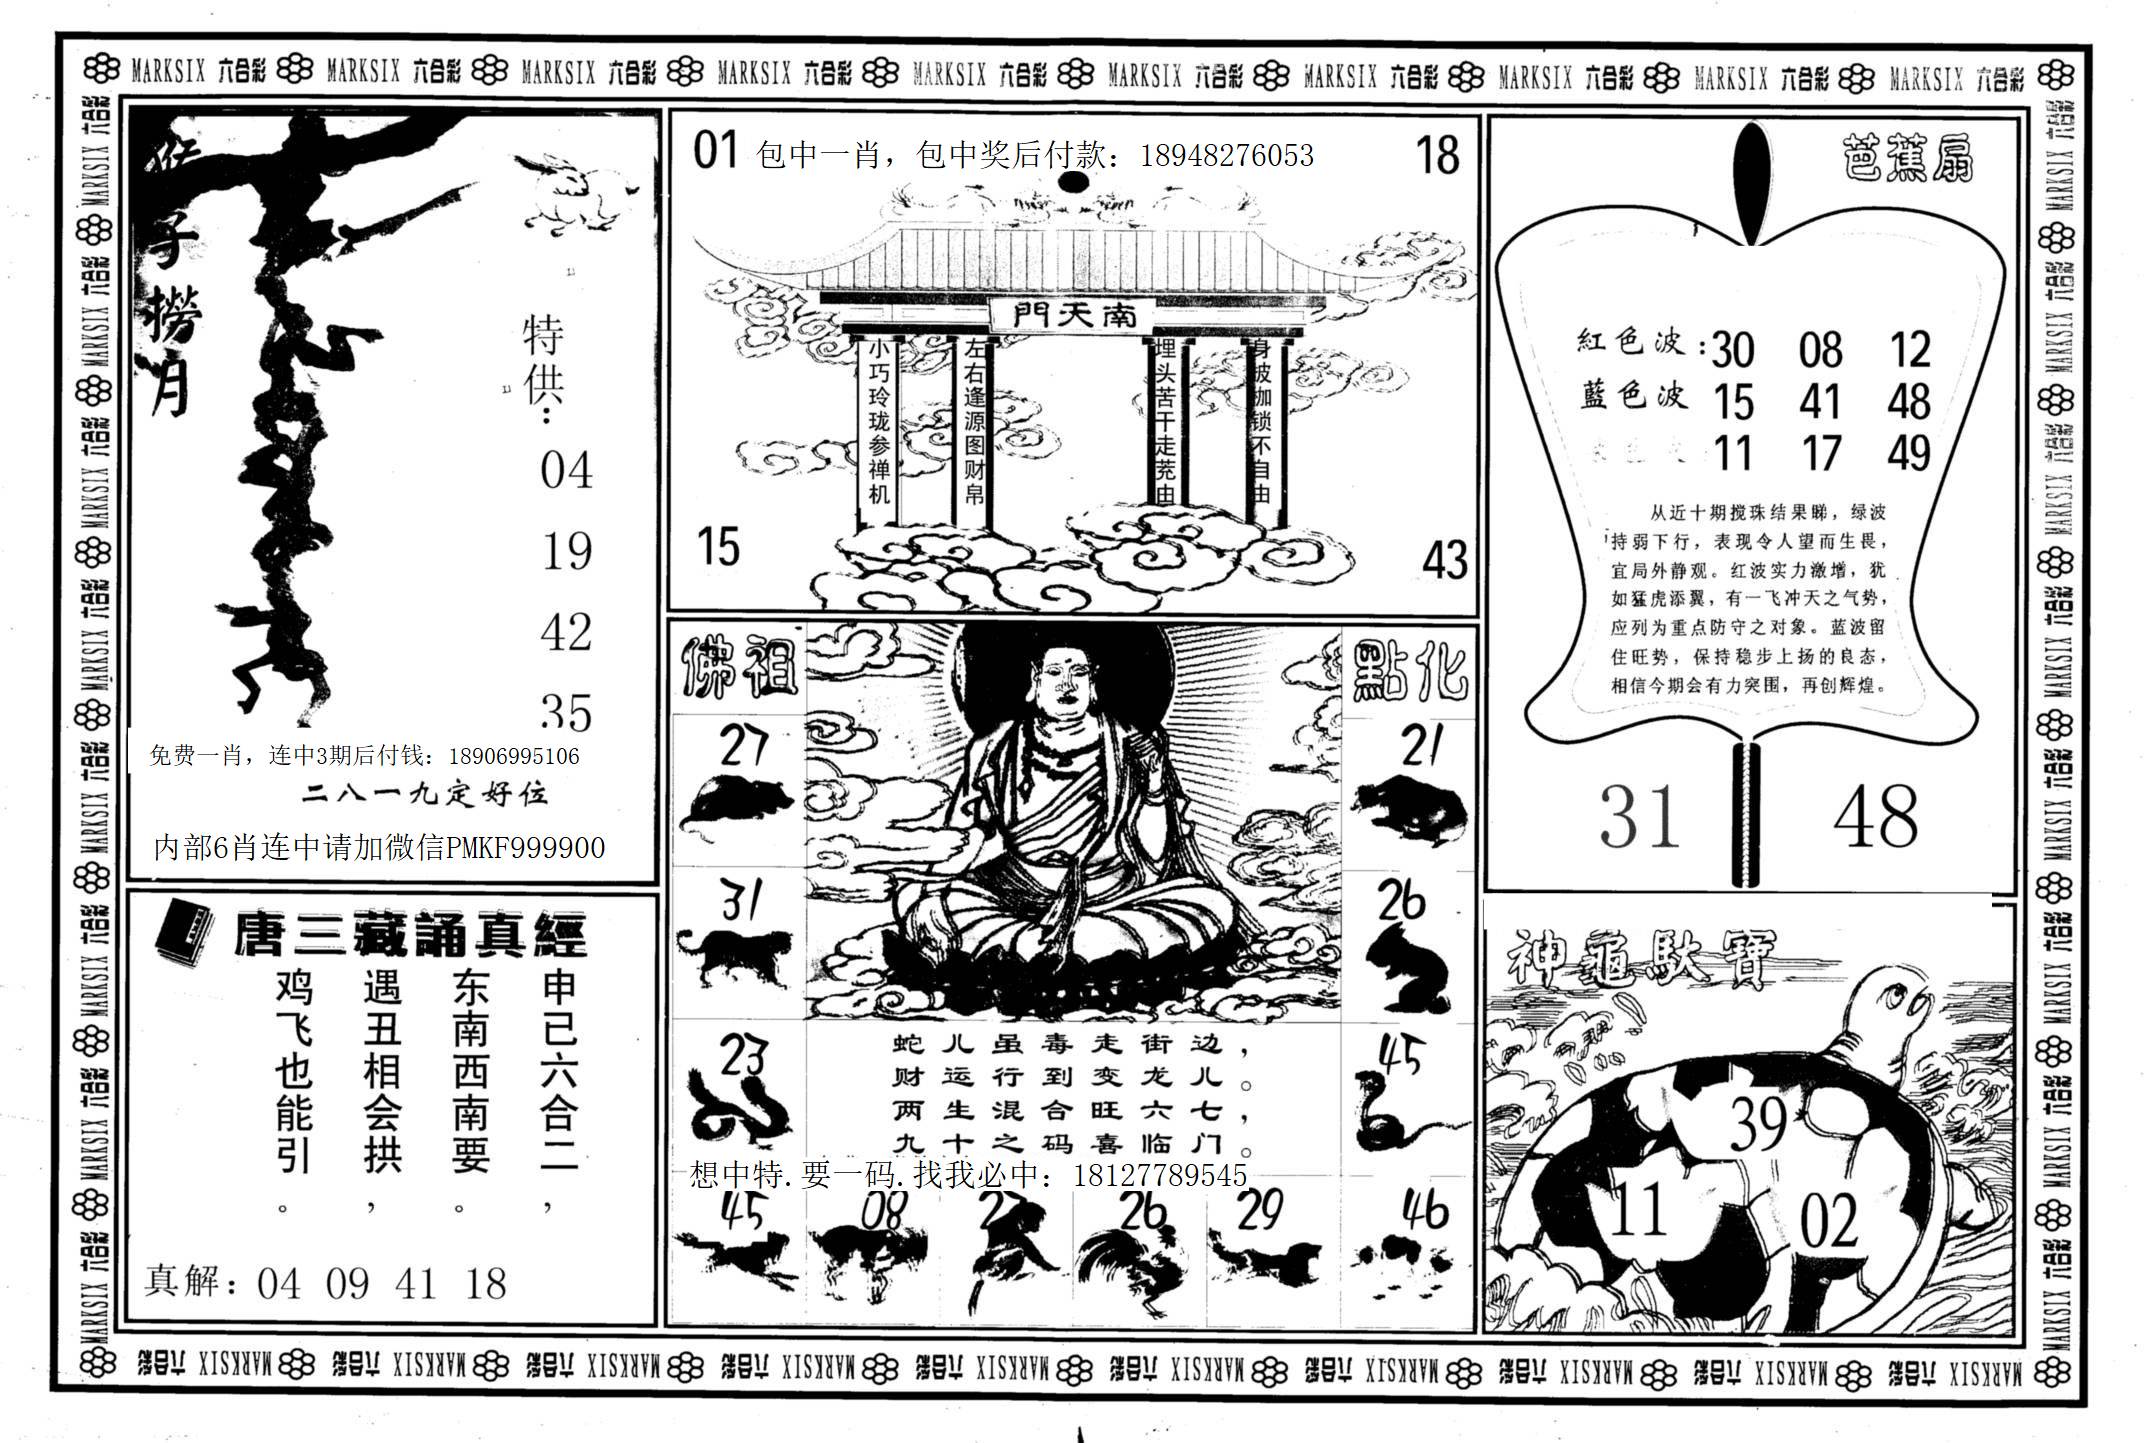 MARKSIX 六合彩 MARKSIX 六合彩 MARKSIX 六合彩 MARKSIX 六合彩 MARKSIX 六合彩 MARKSIX 六合彩 MARKSIX 六合彩 MARKSIX 六合彩 MARKSIX 六合彩 MARKSIX 六合彩
猴子撈月
特供：
04
19
42
35
免费一肖，连中3期后付钱：18906995106
二八一九定好位
内部6肖连中请加微信PMKF999900
唐三藏誦真經
申已六合二，
东南西南要。
遇丑相会拱，
鸡飞也能引。
真解：04 09 41 18
01 包中一肖，包中奖后付款：18948276053 18
南天門
身披枷锁不自由
埋头苦干走茺由
左右逢源图财帛
小巧玲珑参禅机
15 43
佛祖 點化
27 21
31 26
23 45
蛇儿虽毒走街边，
财运行到变龙儿。
两生混合旺六七，
九十之码喜临门。
想中特.要一码.找我必中：18127789545
45 08 27 26 29 46
芭蕉扇
紅色波：30 08 12
藍色波 15 41 48
11 17 49
从近十期搅珠结果睇，绿波
持弱下行，表现令人望而生畏，
宜局外静观。红波实力激增，犹
如猛虎添翼，有一飞冲天之气势，
应列为重点防守之对象。蓝波留
住旺势，保持稳步上扬的良态，
相信今期会有力突围，再创辉煌。
31 48
神龜馱寶
39
11 02
MARKSIX 六合彩 MARKSIX 六合彩 MARKSIX 六合彩 MARKSIX 六合彩 MARKSIX 六合彩 MARKSIX 六合彩 MARKSIX 六合彩 MARKSIX 六合彩 MARKSIX 六合彩 MARKSIX 六合彩